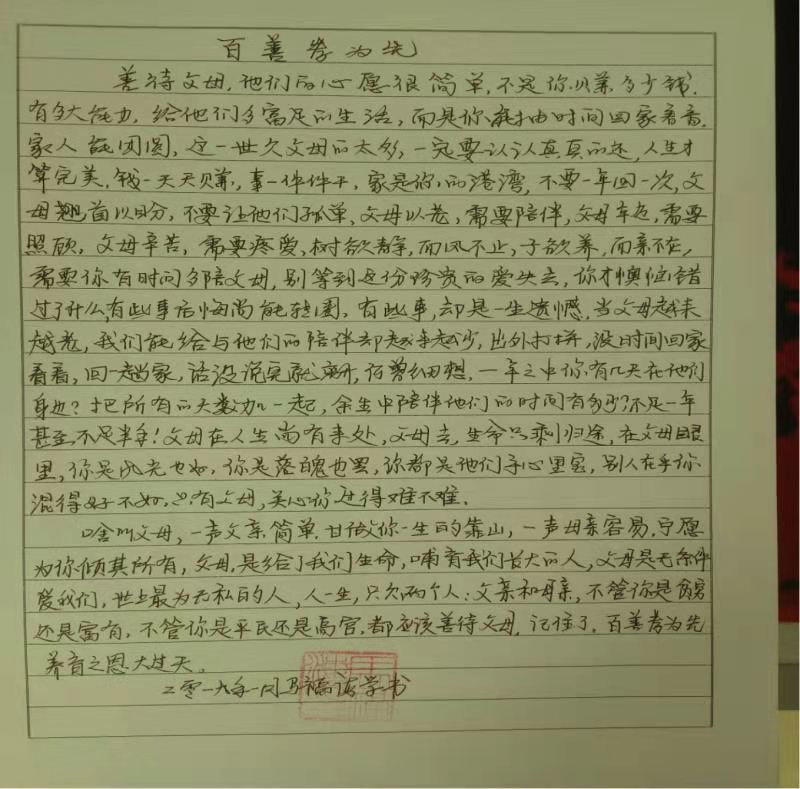 百善孝为先
善待父母,他们的心愿很简单,不是你以赚多少钱,
有多大能力,给他们多富足的生活,而是你能抽时间回家看看,
家人能团圆,这一世欠父母的太多,一定要认认真真的还,人生才
算完美,钱一天天赚,事一件件干,家是你的港湾,不要一年回一次,父
母翘首以盼,不要让他们孤单,父母以老,需要陪伴,父母年迈,需要
照顾,父母辛苦,需要疼爱,树欲静,而风不止,子欲养,而亲不在,
需要你有时间多陪父母,别等到这份珍贵的爱失去,你才懊恼错
过了什么,有些事后悔尚能转圜,有些事,却是一生遗憾,当父母越来
越老,我们能给与他们的陪伴却越来越少,出外打拼,没时间回家
看看,回一趟家,话没说完就离开,何曾细想,一年之中你有几天在他们
身边?把所有的天数加一起,余生中陪伴他们的时间有多少?不足一年
甚至不足半年!父母在人生尚有来处,父母去,生命只剩归途,在父母眼
里,你是风光也好,你是落魄也罢,你都是他们手心里宝,别人在乎你
混得好不好,只有父母,关心你过得难不难.
啥叫父母,一声父亲简单,甘做你一生的靠山,一声母亲容易,宁愿
为你倾其所有,父母,是给了我们生命,哺育我们长大的人,父母是无条件
爱我们,世上最为无私的人,人一生,只欠两个人:父亲和母亲,不管你是贫穷
还是富有,不管你是平民还是高官,都应该善待父母,记住了,百善孝为先
养育之恩大过天。
二零一九年一月 学书